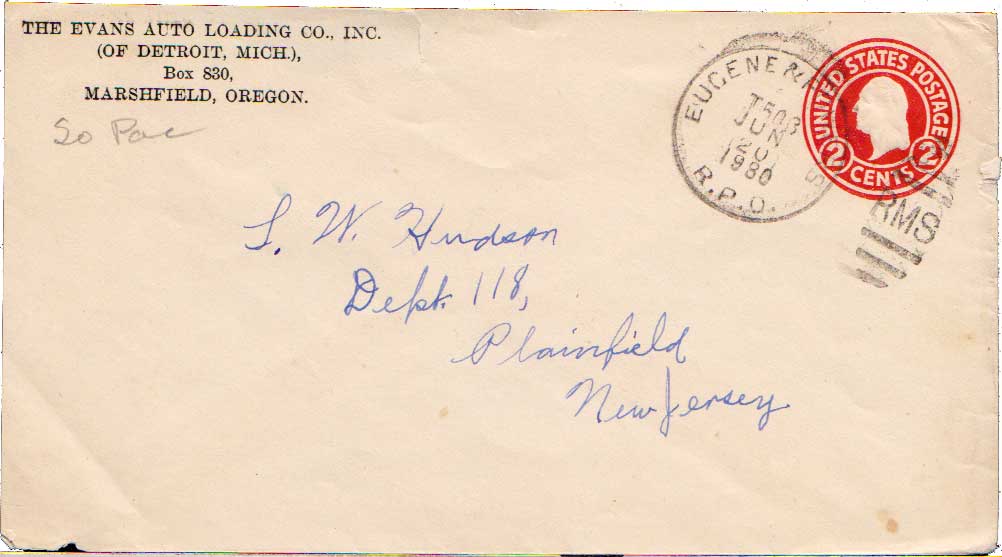 THE EVANS AUTO LOADING CO., INC.
(OF DETROIT, MICH.),
Box 830,
MARSHFIELD, OREGON.
So Pac
EUGENE &
T508
JUN
20
1930
R.P.O.
UNITED STATES POSTAGE
2 CENTS 2
RMS
L. W. Hudson
Dept. 118,
Plainfield
New Jersey